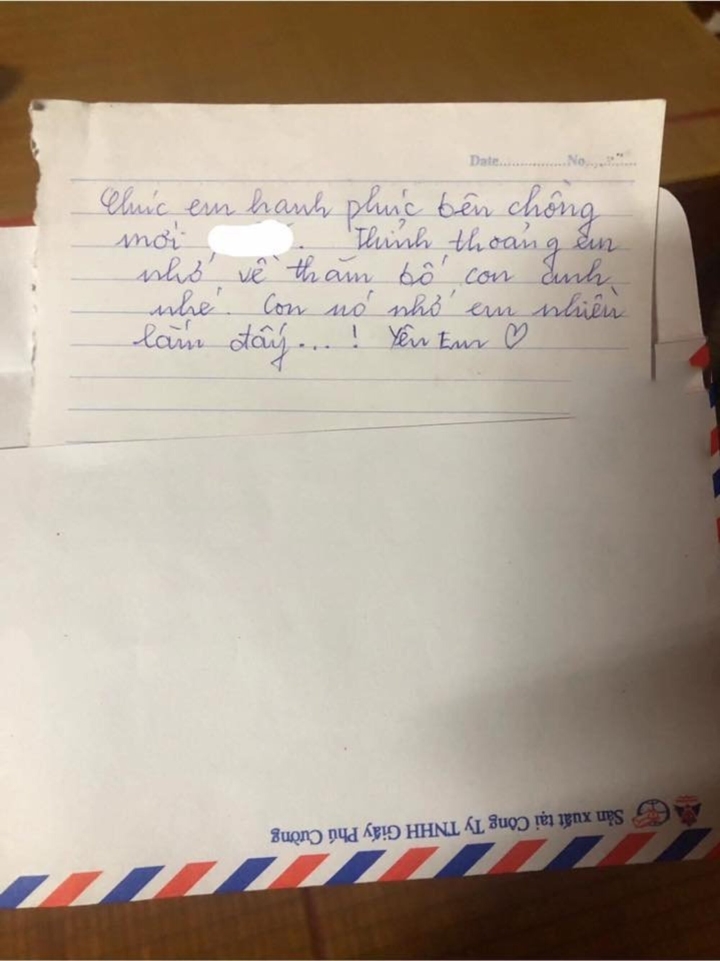 Date................No..........
Chúc em hanh phúc bên chồng
mới . Thỉnh thoảng em
nhớ về thăm bố con anh
nhé. Con nó nhớ em nhiều
lắm đấy...! Yêu Em ♡
Sản xuất tại Công Ty TNHH Giấy Phú Cường